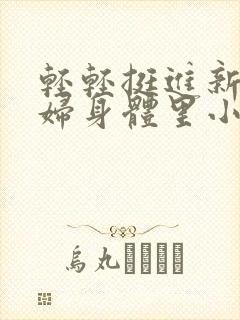 輕輕挺進新
婦身體里小
烏丸